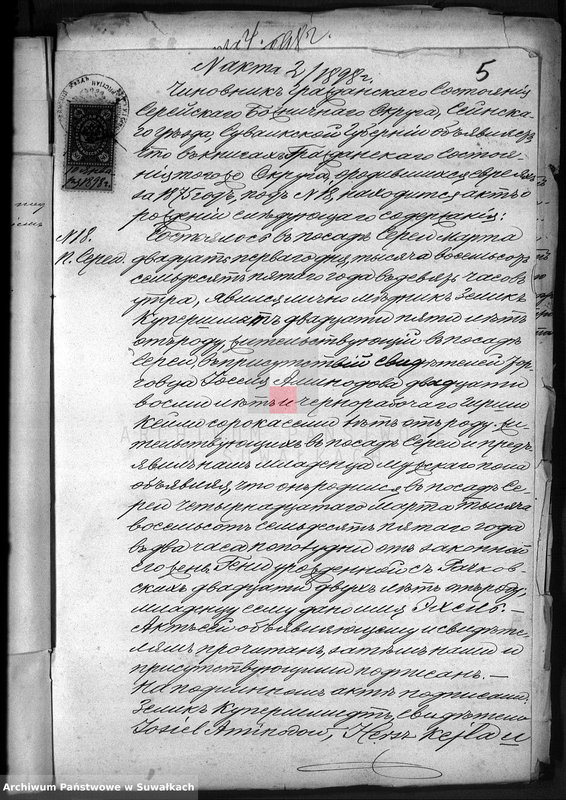 N акта 2/1898г.
5
Чиновникъ Гражданскаго Состоянія
Серейскаго Божничнаго Округа, Сейнска-
го уѣзда, Сувалкской губерніи объявляетъ
что въ книгахъ Гражданскаго Состоя-
нія того Округа, о родившихся евреяхъ
за 1875 годъ, подъ N 18, находится актъ о
рожденіи слѣдующаго содержанія:
N 18.
п. Сереи.
Состоялось въ посадѣ Сереи Марта
двадцать перваго дня, тысяча восемьсотъ
семьдесятъ пятаго года въ девять часовъ
утра, явился лично мѣдникъ Зеликъ
Купершмитъ двадцати пяти лѣтъ
отъ роду, жительствующій въ посадѣ
Сереи, въ присутствіи свидѣтелей Тор-
говца двадцати
восьми лѣтъ и чернорабочаго Гирша
Кейли сорока семи лѣтъ отъ роду, жи-
тельствующихъ въ посадѣ Сереи и предъ-
явилъ намъ младенца мужскаго пола
объявляя, что онъ родился въ посадѣ Се-
реи четырнадцатаго Марта тысяча
восемьсотъ семьдесятъ пятаго года
въ два часа пополудни отъ законной
его жены, урожденной съ
двадцати двухъ лѣтъ отъ роду,
младенцу сему дано имя
Актъ сей объявляющему и свидѣте-
лямъ прочитанъ, затѣмъ нами и
присутствующими подписанъ. —
На подлинномъ актѣ подписали:
Зеликъ Купершмидтъ, свидѣтели
Josiel, Herz Kejla и
Archiwum Państwowe w Suwałkach